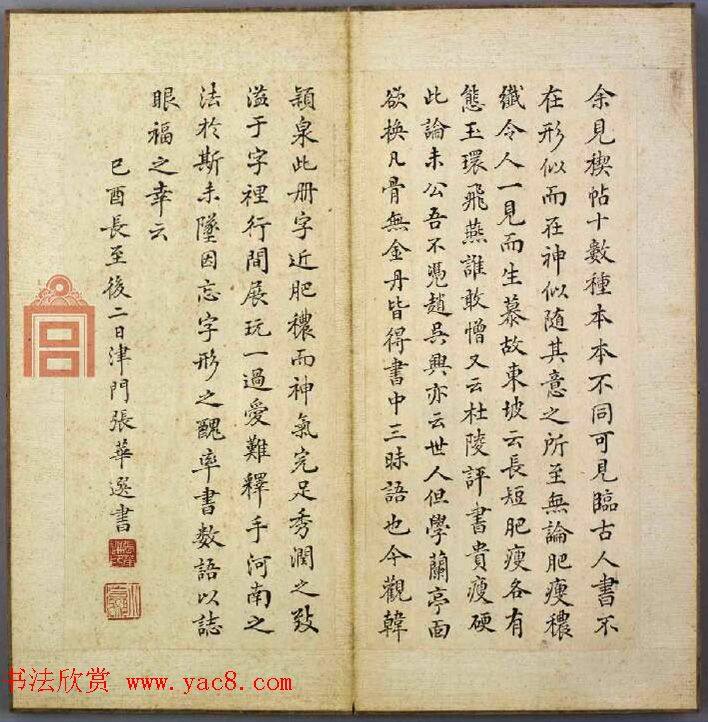 余見稧帖十數種本本不同可見臨古人書不
在形似而在神似随其意之所至無論肥瘦穠
纖令人一見而生慕故東坡云長短肥瘦各有
態玉環飛燕誰敢憎又云杜陵評書貴瘦硬
此論未公吾不凴趙吳興亦云世人但學蘭亭面
欲换凡骨無金丹皆得書中三昧語也今觀韓
潁泉此册字近肥穠而神氣完足秀潤之致
溢于字裡行間展玩一過愛難釋手河南之
法於斯未墜因忘字形之醜率書数語以誌
眼福之幸云
己酉長至後二日津門張華逐書
书法欣赏 www.yac8.com